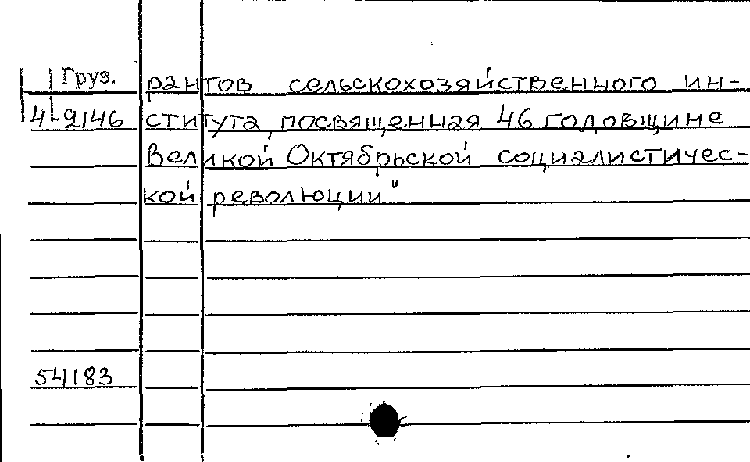 Груз. рантов сельскохозяйственного ин-
4-9146 ститута, посвященная 46 годовщине
Великой Октябрьской социалистичес-
кой революции"
54183